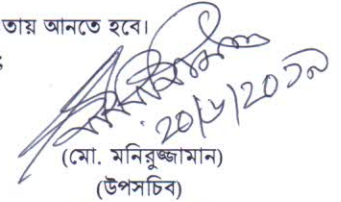 তায় আনতে হবে।
২০/৬/২০১৯
(মো. মনিরুজ্জামান)
(উপসচিব)